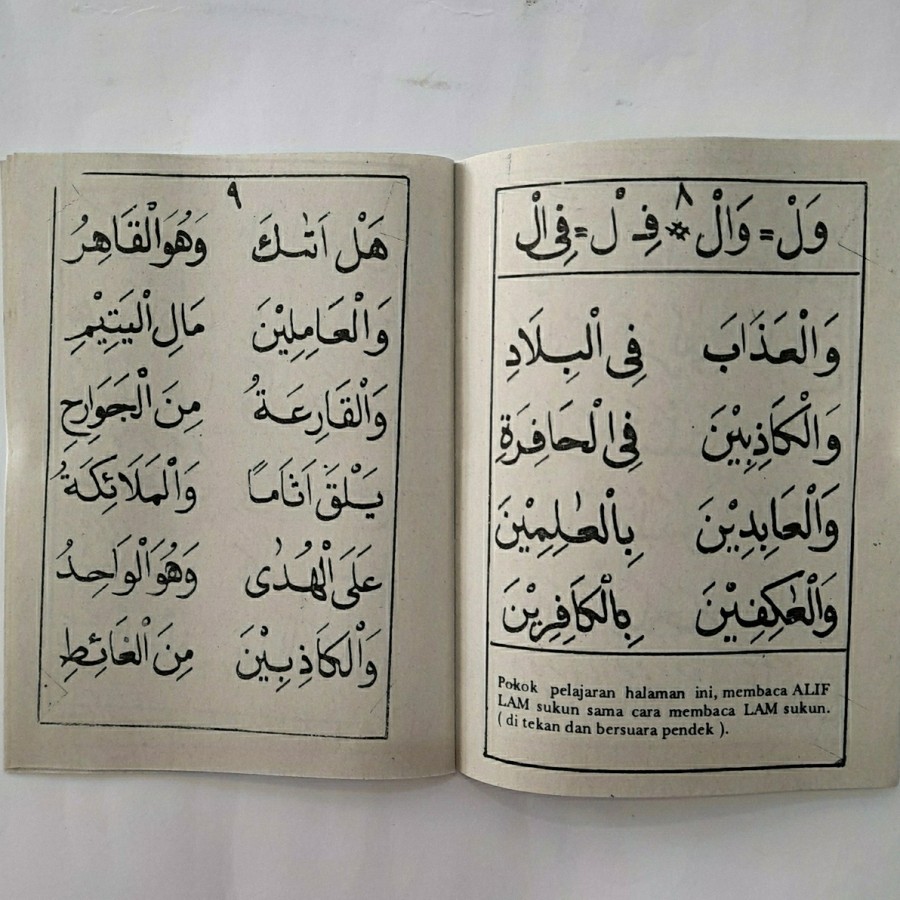 ٨
وَلْ = وَالْ * فِـ لْ = فِى الْ
وَالْعَذَابَ فِى الْبِلَادِ
وَالْكَاذِبِيْنَ فِى الْحَافِرَةِ
وَالْعَابِدِيْنَ بِالْعٰلِمِيْنَ
وَالْعٰكِفِيْنَ بِالْكَافِرِيْنَ
Pokok pelajaran halaman ini, membaca ALIF
LAM sukun sama cara membaca LAM sukun.
( di tekan dan bersuara pendek ).
٩
هَلْ اَتٰىكَ وَهُوَ الْقَاهِرُ
وَالْعَامِلِيْنَ مَالِ الْيَتِيْمِ
وَالْقَارِعَةُ مِنَ الْجَوَارِحِ
يَلْقَ اَثَامًا وَالْمَلَائِكَةُ
عَلَى الْهُدٰى وَهُوَ الْوَاحِدُ
وَالْكَاذِبِيْنَ مِنَ الْغَائِطِ